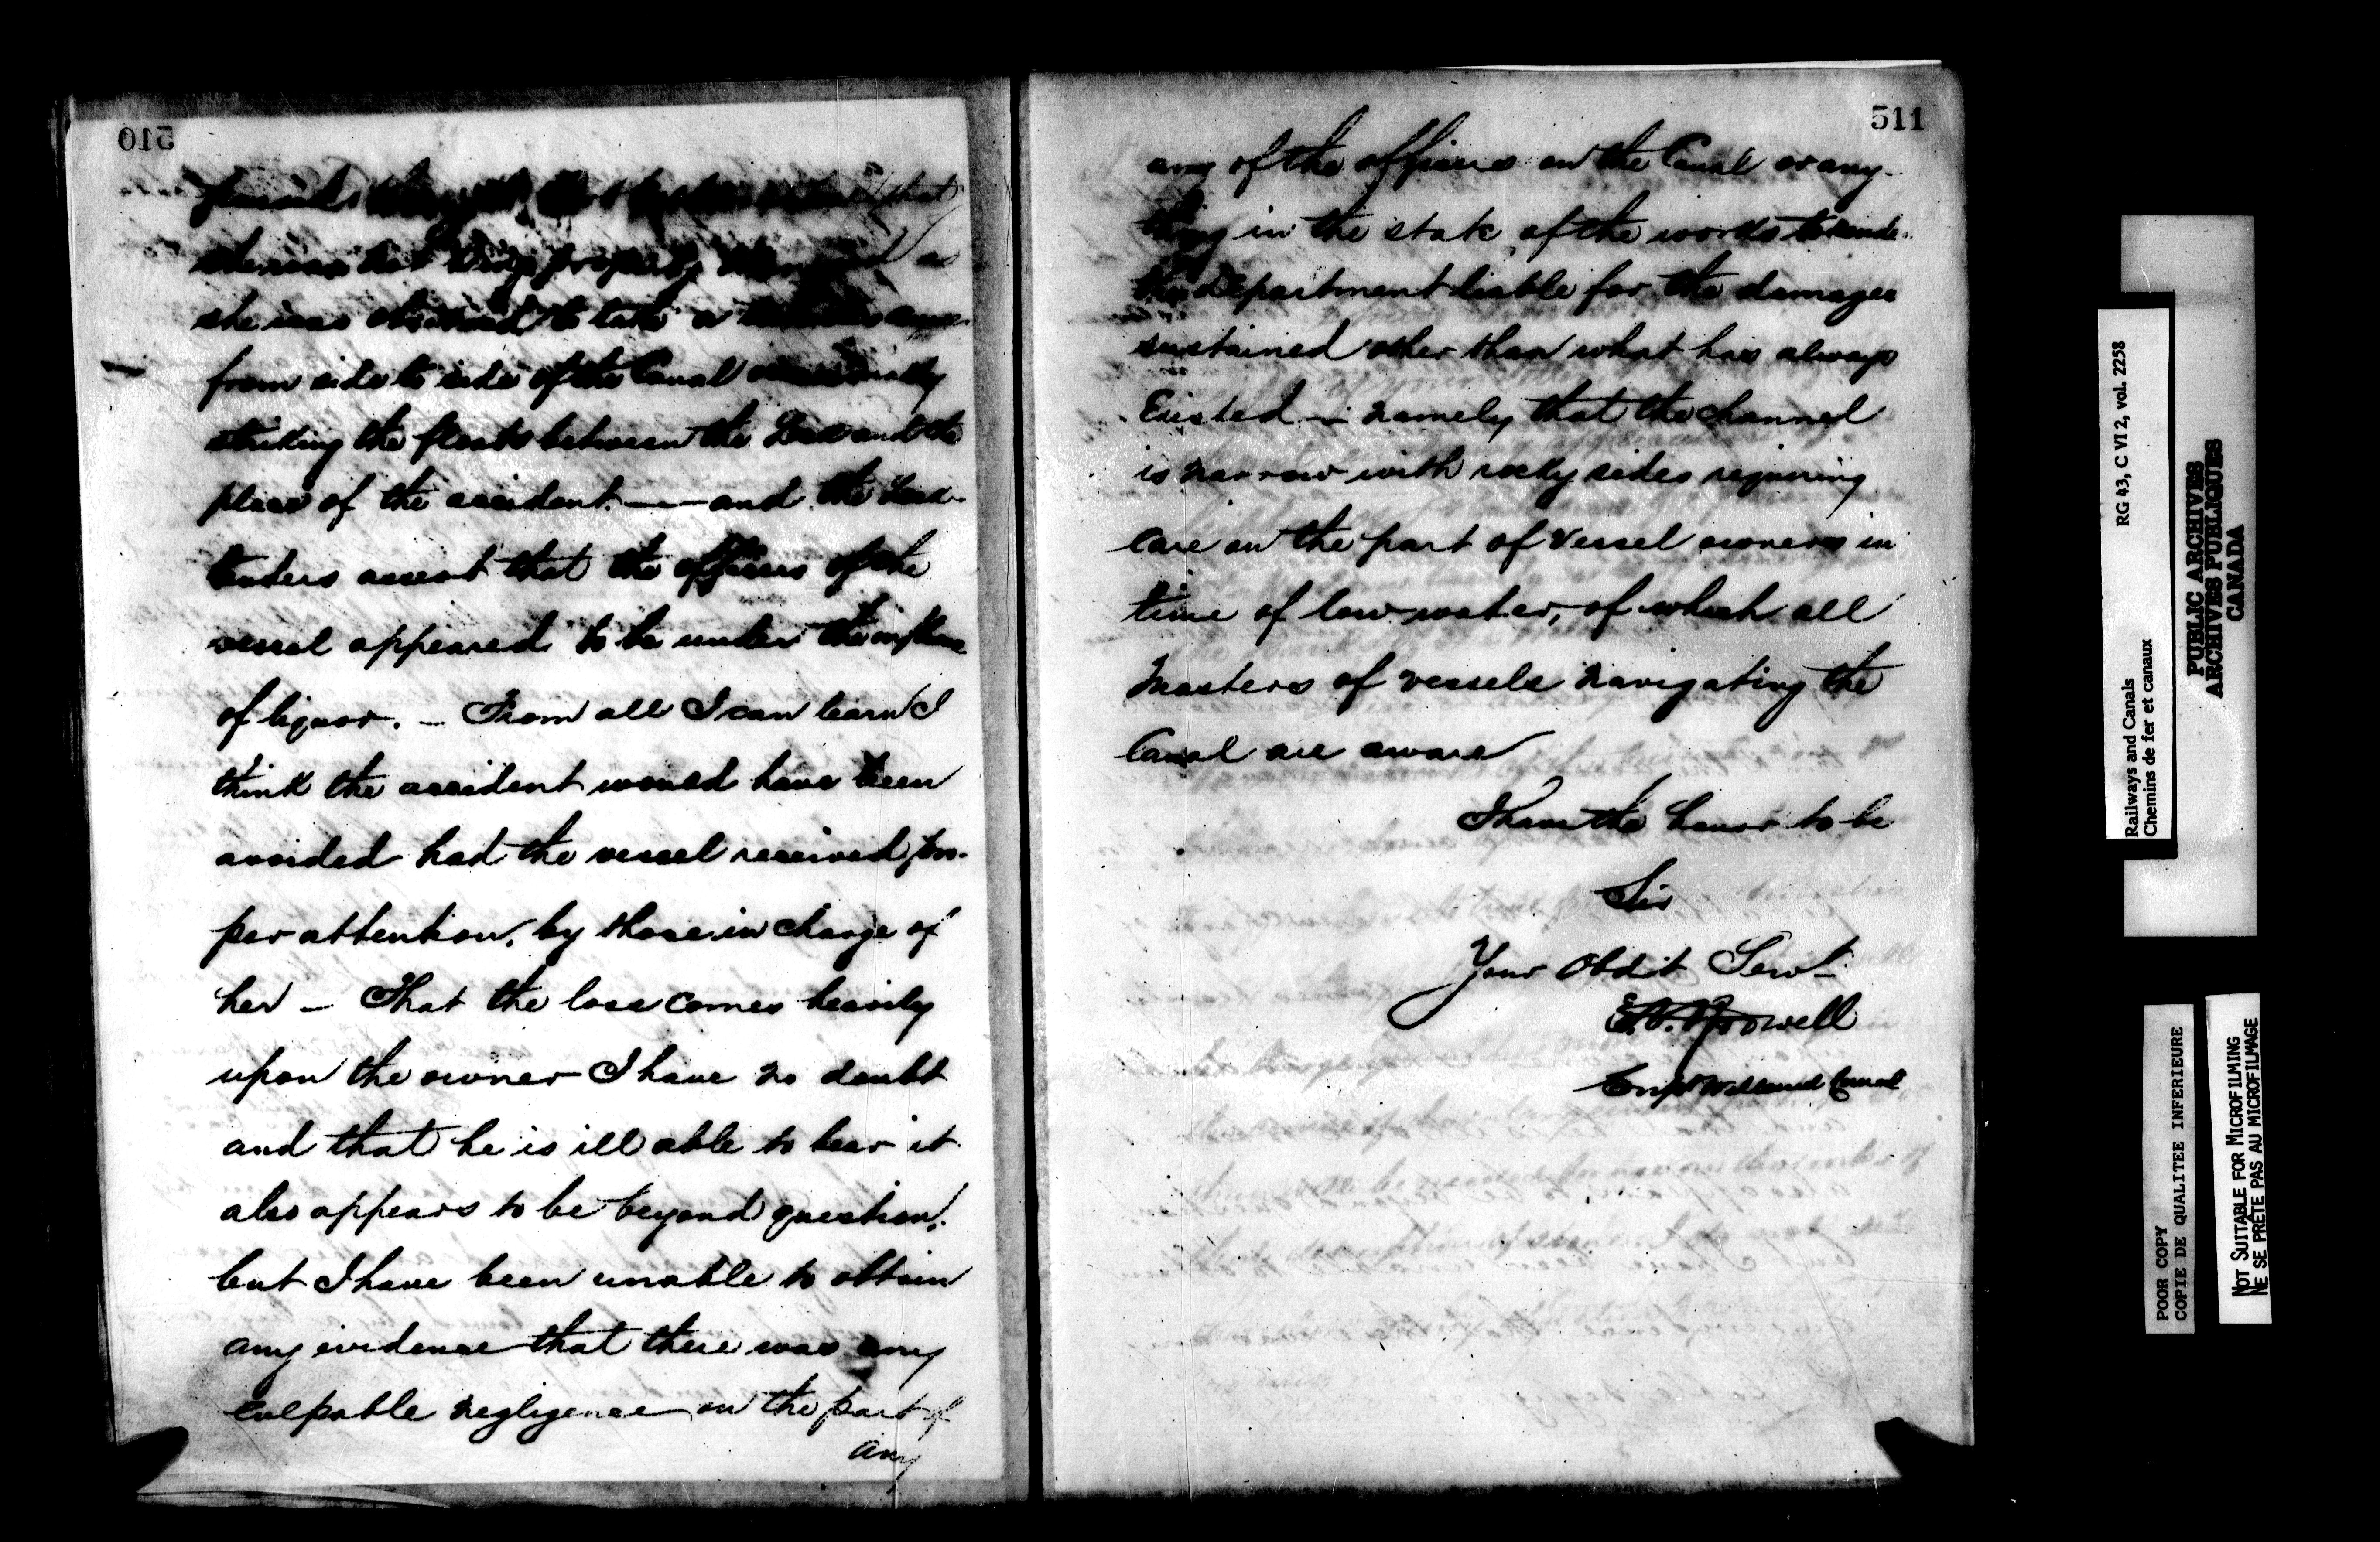 510
that
she was not being properly as
she was observed to take a
from side to side of the Canal occasionally
striking the floats between the Lock and the
place of the accident. — and the Lock-
tenders assert that the officers of the
vessel appeared to be under the influence
of liquor. — From all I can learn I
think the accident would have been
avoided had the vessel received pro-
per attention, by those in charge of
her — That the loss comes heavily
upon the owner I have no doubt
and that he is ill able to bear it
also appears to be beyond question.
but I have been unable to obtain
any evidence that there was any
culpable negligence on the part of
any
511
any of the officers on the Canal or any-
thing in the state of the works to render
the Department liable for the damages
sustained other than what has always
Existed — namely that the channel
is narrow with rocky sides requiring
care on the part of Vessel owners in
time of low water, of which all
Masters of vessels navigating the
Canal are aware
I have the honor to be
Sir
Your Obdt Servt
Supt Welland Canal
RG 43, C VI 2, vol. 2258
Railways and Canals
Chemins de fer et canaux
PUBLIC ARCHIVES
ARCHIVES PUBLIQUES
CANADA
POOR COPY
COPIE DE QUALITEE INFERIEURE
NOT SUITABLE FOR MICROFILMING
NE SE PRÊTE PAS AU MICROFILMAGE